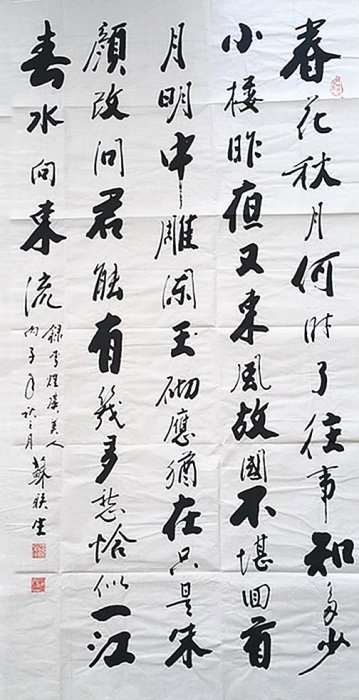 春花秋月何时了往事知多少
小楼昨夜又東風故國不堪回首
月明中雕闌玉砌應猶在只是朱
顏改問君能有幾多愁恰似一江
春水向東流
録李煜虞美人
丙子年秋月 蘇